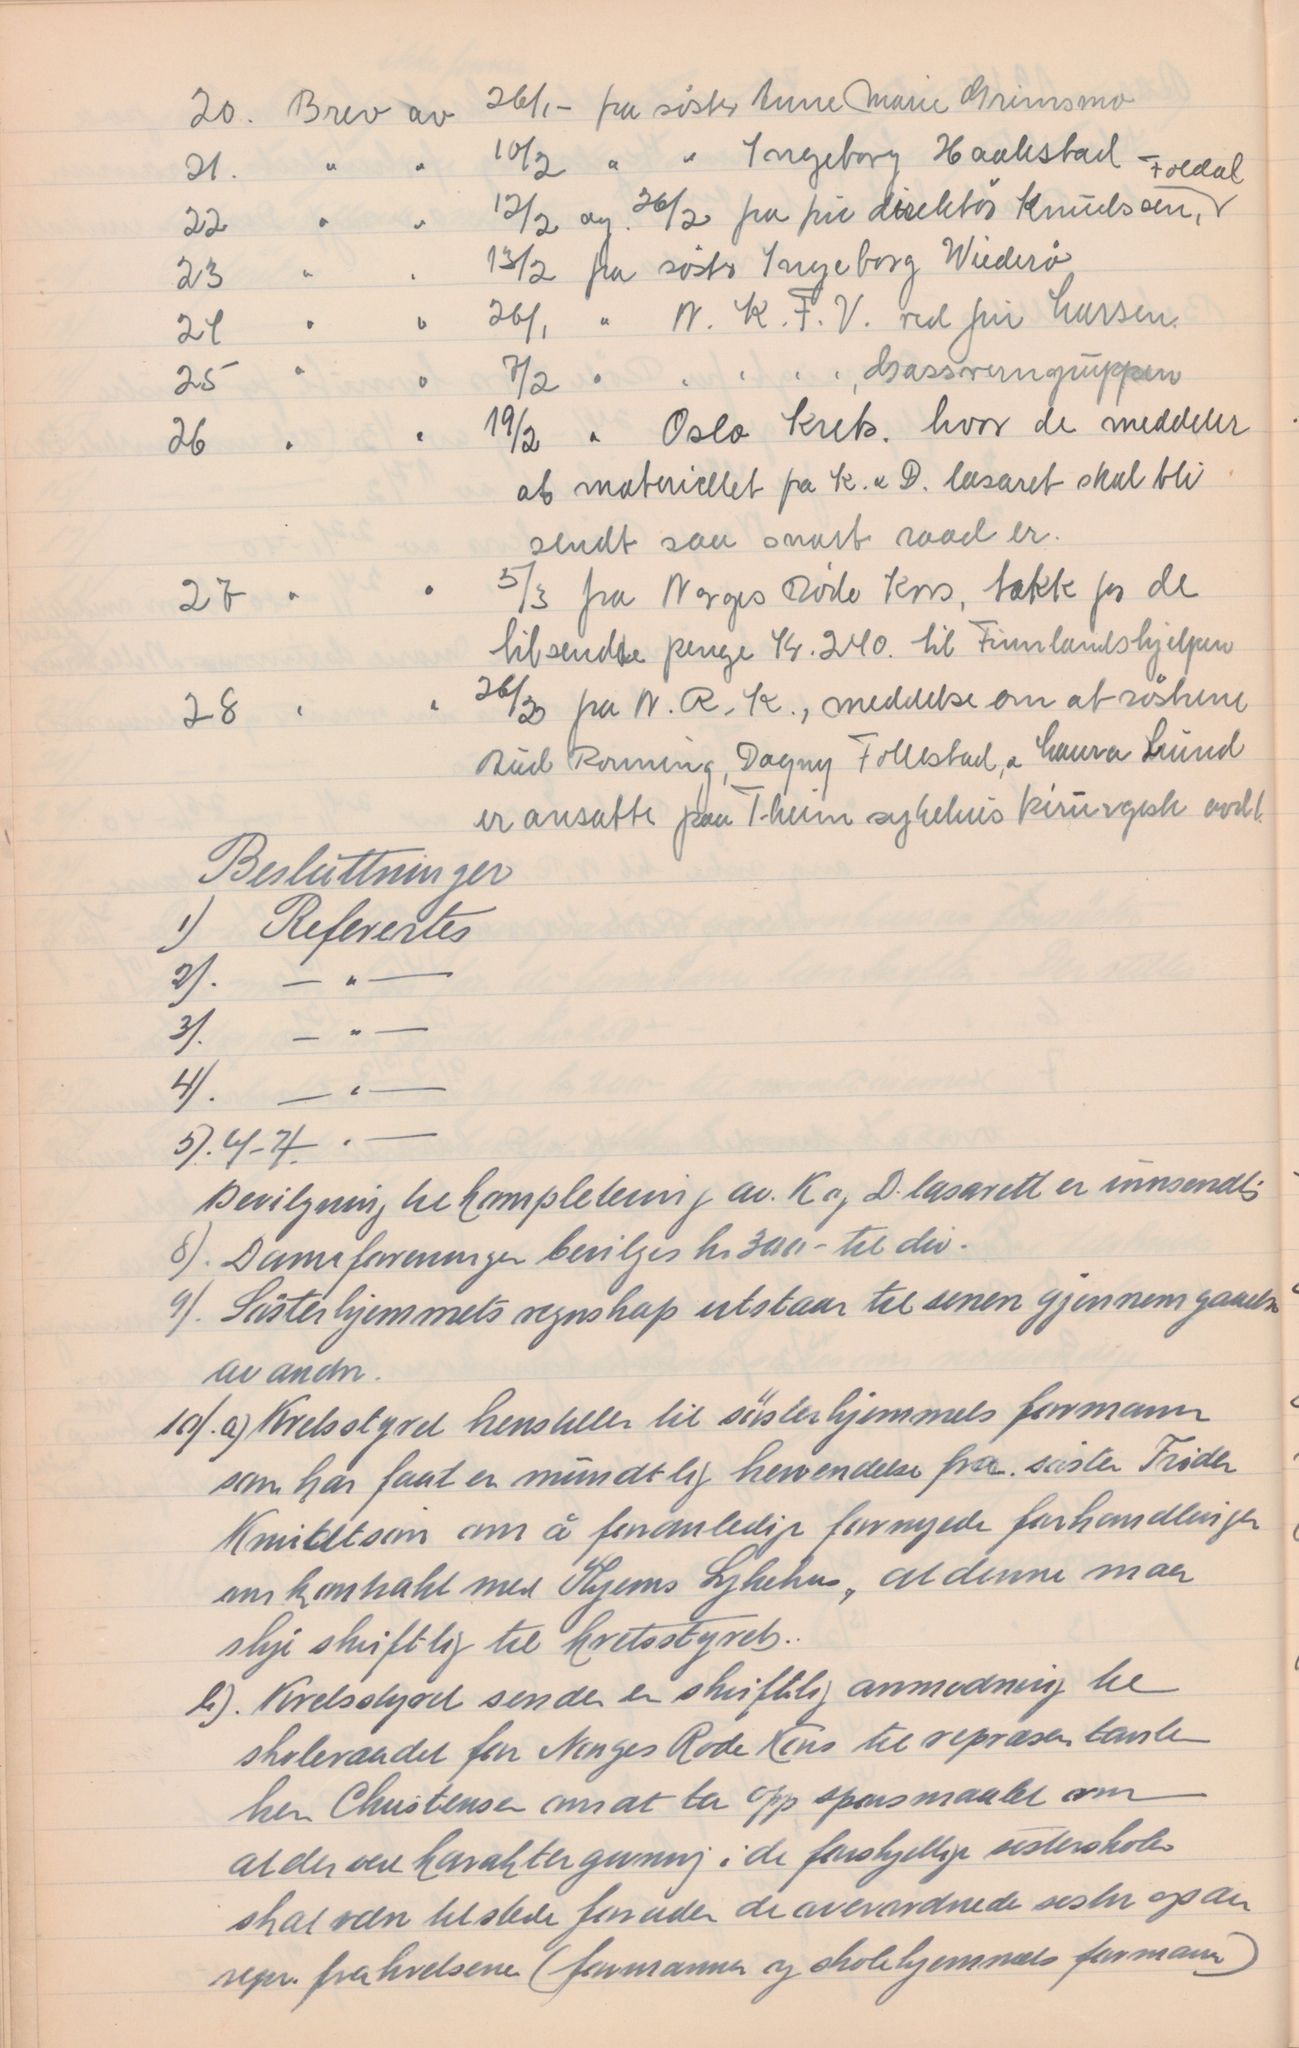 20. Brev av 26/1 - fra søster Anne Marie Grimsmo
21. " " 10/2 " " Ingeborg Haakestad
22 " " 12/2 og 26/2 fra frú direktör Knudssen, Foldal
23 " " 13/2 fra søster Ingeborg Widerö
24 " " 26/1 " N. K. F. V. ved frú Larsen.
25 " " 7/2 " " " " ", Gassverngrúppen
26 " " 19/2 " Oslo Krets. hvor de meddeler
at materiellet fra K. & D. lasaret skal bli
sendt saa snart raad er.
27 " " 5/3 fra Norges Røde Kors, takk for de
tilsendte penge Kr. 240. til Finnlandshjelpen
28 " " 26/2 fra N. R. K., meddelse om at søstrene
Rúd Ronning, Dagny Follestad, & Laura Lúnd
er ansatte paa T.heim sykehús kirúrgisk avdl.
Beslúttninger
1) Referertes
2). — " —
3). — " —
4). — " —
5). 4-7. " —
Bevilgning til komplettering av. K og D. lasarett er innsendt;
8). Dameforeninger bevilges kr 300 - til div.
9). Søsterhjemmets regnskap utstaar til senere gjennemgaaelse
av andre.
10). a) Kretsstyret henstiller til søsterhjemmets formann
som har faat en múndtlig henvendelse fra søster Frida
Knútson om å foranledige fornyede forhandlinger
om kontrakt med Hjems Sykehus, at denne maa
skje skriftlig til kretsstyret.
b). Kretsstyret sender en skriftlig anmodning til
skoleraadet for Norges Røde Kors til repræsentanten
herr Christensen om at ta opp spørsmaalet om
at der ved karaktergivning i de forskjellige søsterskoler
skal være tilstede foruden de overordnede søstre ogsaa
repr. fra kretsene (formannen og skolehjemmets formann)